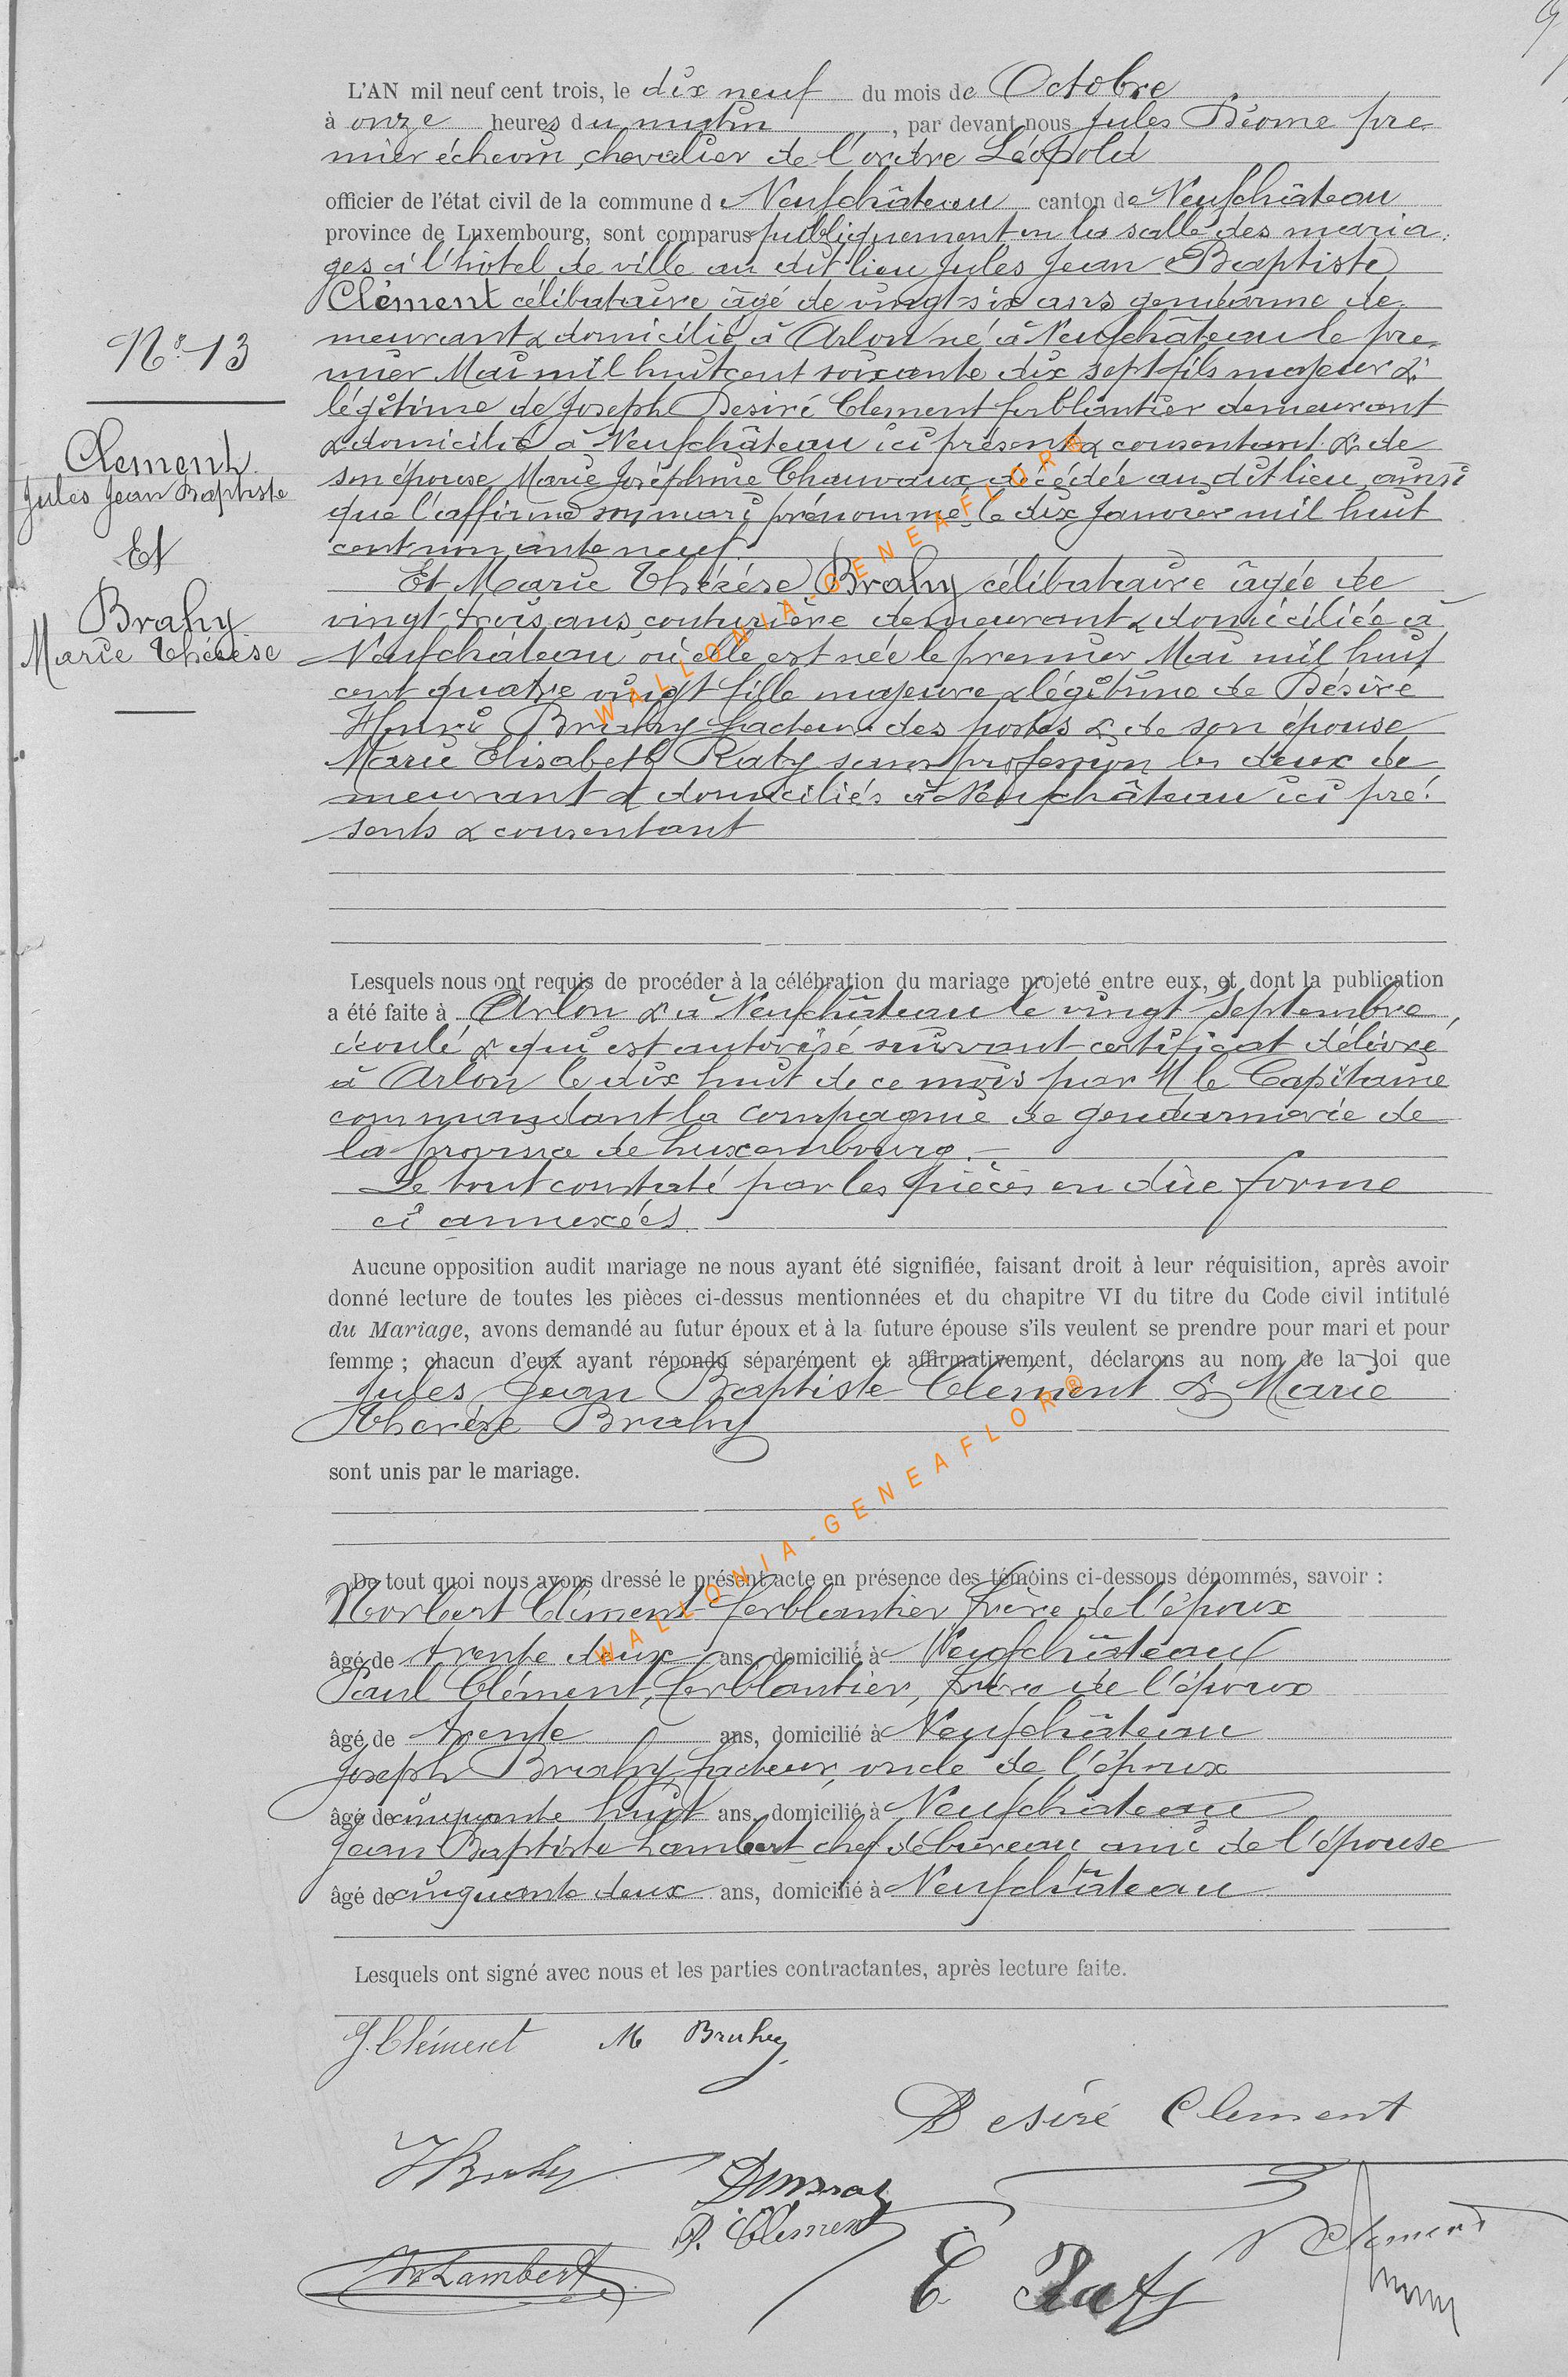 L'AN mil neuf cent trois, le dix neuf du mois de Octobre
à onze heures du matin, par devant nous Jules Diome pre-
mier échevin, chevalier de l'ordre Léopold
officier de l'état civil de la commune de Neufchâteau canton de Neufchâteau
province de Luxembourg, sont comparus publiquement en la salle des maria-
ges à l'hôtel de ville au dit lieu Jules Jean Baptiste
Clément célibataire âgé de vingt-six ans gendarme de-
meurant & domicilié à Arlon né à Neufchâteau le pre-
mier Mai mil huit cent soixante dix sept fils majeur &
légitime de Joseph Desiré Clement ferblantier demeurant
& domicilié à Neufchâteau ici présent & consentant & de
son épouse Marie Joséphine Chauvaux décédée au dit lieu ainsi
que l'affirme son mari prénommé, le dix Janvier mil huit
cent nonante neuf.
Et Marie Thérèse Brahy célibataire âgée de
vingt-trois ans, couturière demeurant & domiciliée à
Neufchâteau où elle est née le premier Mai mil huit
cent quatre vingt fille majeure & légitime de Désiré
Henri Brahy facteur des postes & de son épouse
Marie Elisabeth Raty sans profession les deux de
meurant & domiciliés à Neufchâteau ici pré-
sents & consentant
N° 13
Clement
Jules Jean Baptiste
Et
Brahy
Marie Thérèse
Lesquels nous ont requis de procéder à la célébration du mariage projeté entre eux, et dont la publication
a été faite à Arlon & à Neufchâteau le vingt Septembre,
écoulé & qui est autorisé suivant certificat délivré
à Arlon le dix huit de ce mois par M le Capitaine
commandant la compagnie de gendarmerie de
la province de Luxembourg.-
Le tout constaté par les pièces en dûe forme
ci annexées.
Aucune opposition audit mariage ne nous ayant été signifiée, faisant droit à leur réquisition, après avoir
donné lecture de toutes les pièces ci-dessus mentionnées et du chapitre VI du titre du Code civil intitulé
du Mariage, avons demandé au futur époux et à la future épouse s'ils veulent se prendre pour mari et pour
femme ; chacun d'eux ayant répondu séparément et affirmativement, déclarons au nom de la loi que
Jules Jean Baptiste Clement & Marie
Therèse Brahy
sont unis par le mariage.
De tout quoi nous avons dressé le présent acte en présence des témoins ci-dessous dénommés, savoir :
Norbert Clément ferblantier frère de l'époux
âgé de trente deux ans, domicilié à Neufchâteau
Paul Clément, ferblantier, frère de l'époux
âgé de trente ans, domicilié à Neufchâteau
Joseph Brahy facteur, oncle de l'époux
âgé de cinquante huit ans, domicilié à Neufchâteau
Jean Baptiste Lambert chef de bureau ami de l'épouse
âgé de cinquante deux ans, domicilié à Neufchâteau
Lesquels ont signé avec nous et les parties contractantes, après lecture faite.
J. Clément M Brahy
Desiré Clement
J Brahy
P. Clément
N Clement
Lambert
E Raty
WALLONIA-GENEAFLOR®
WALLONIA-GENEAFLOR®